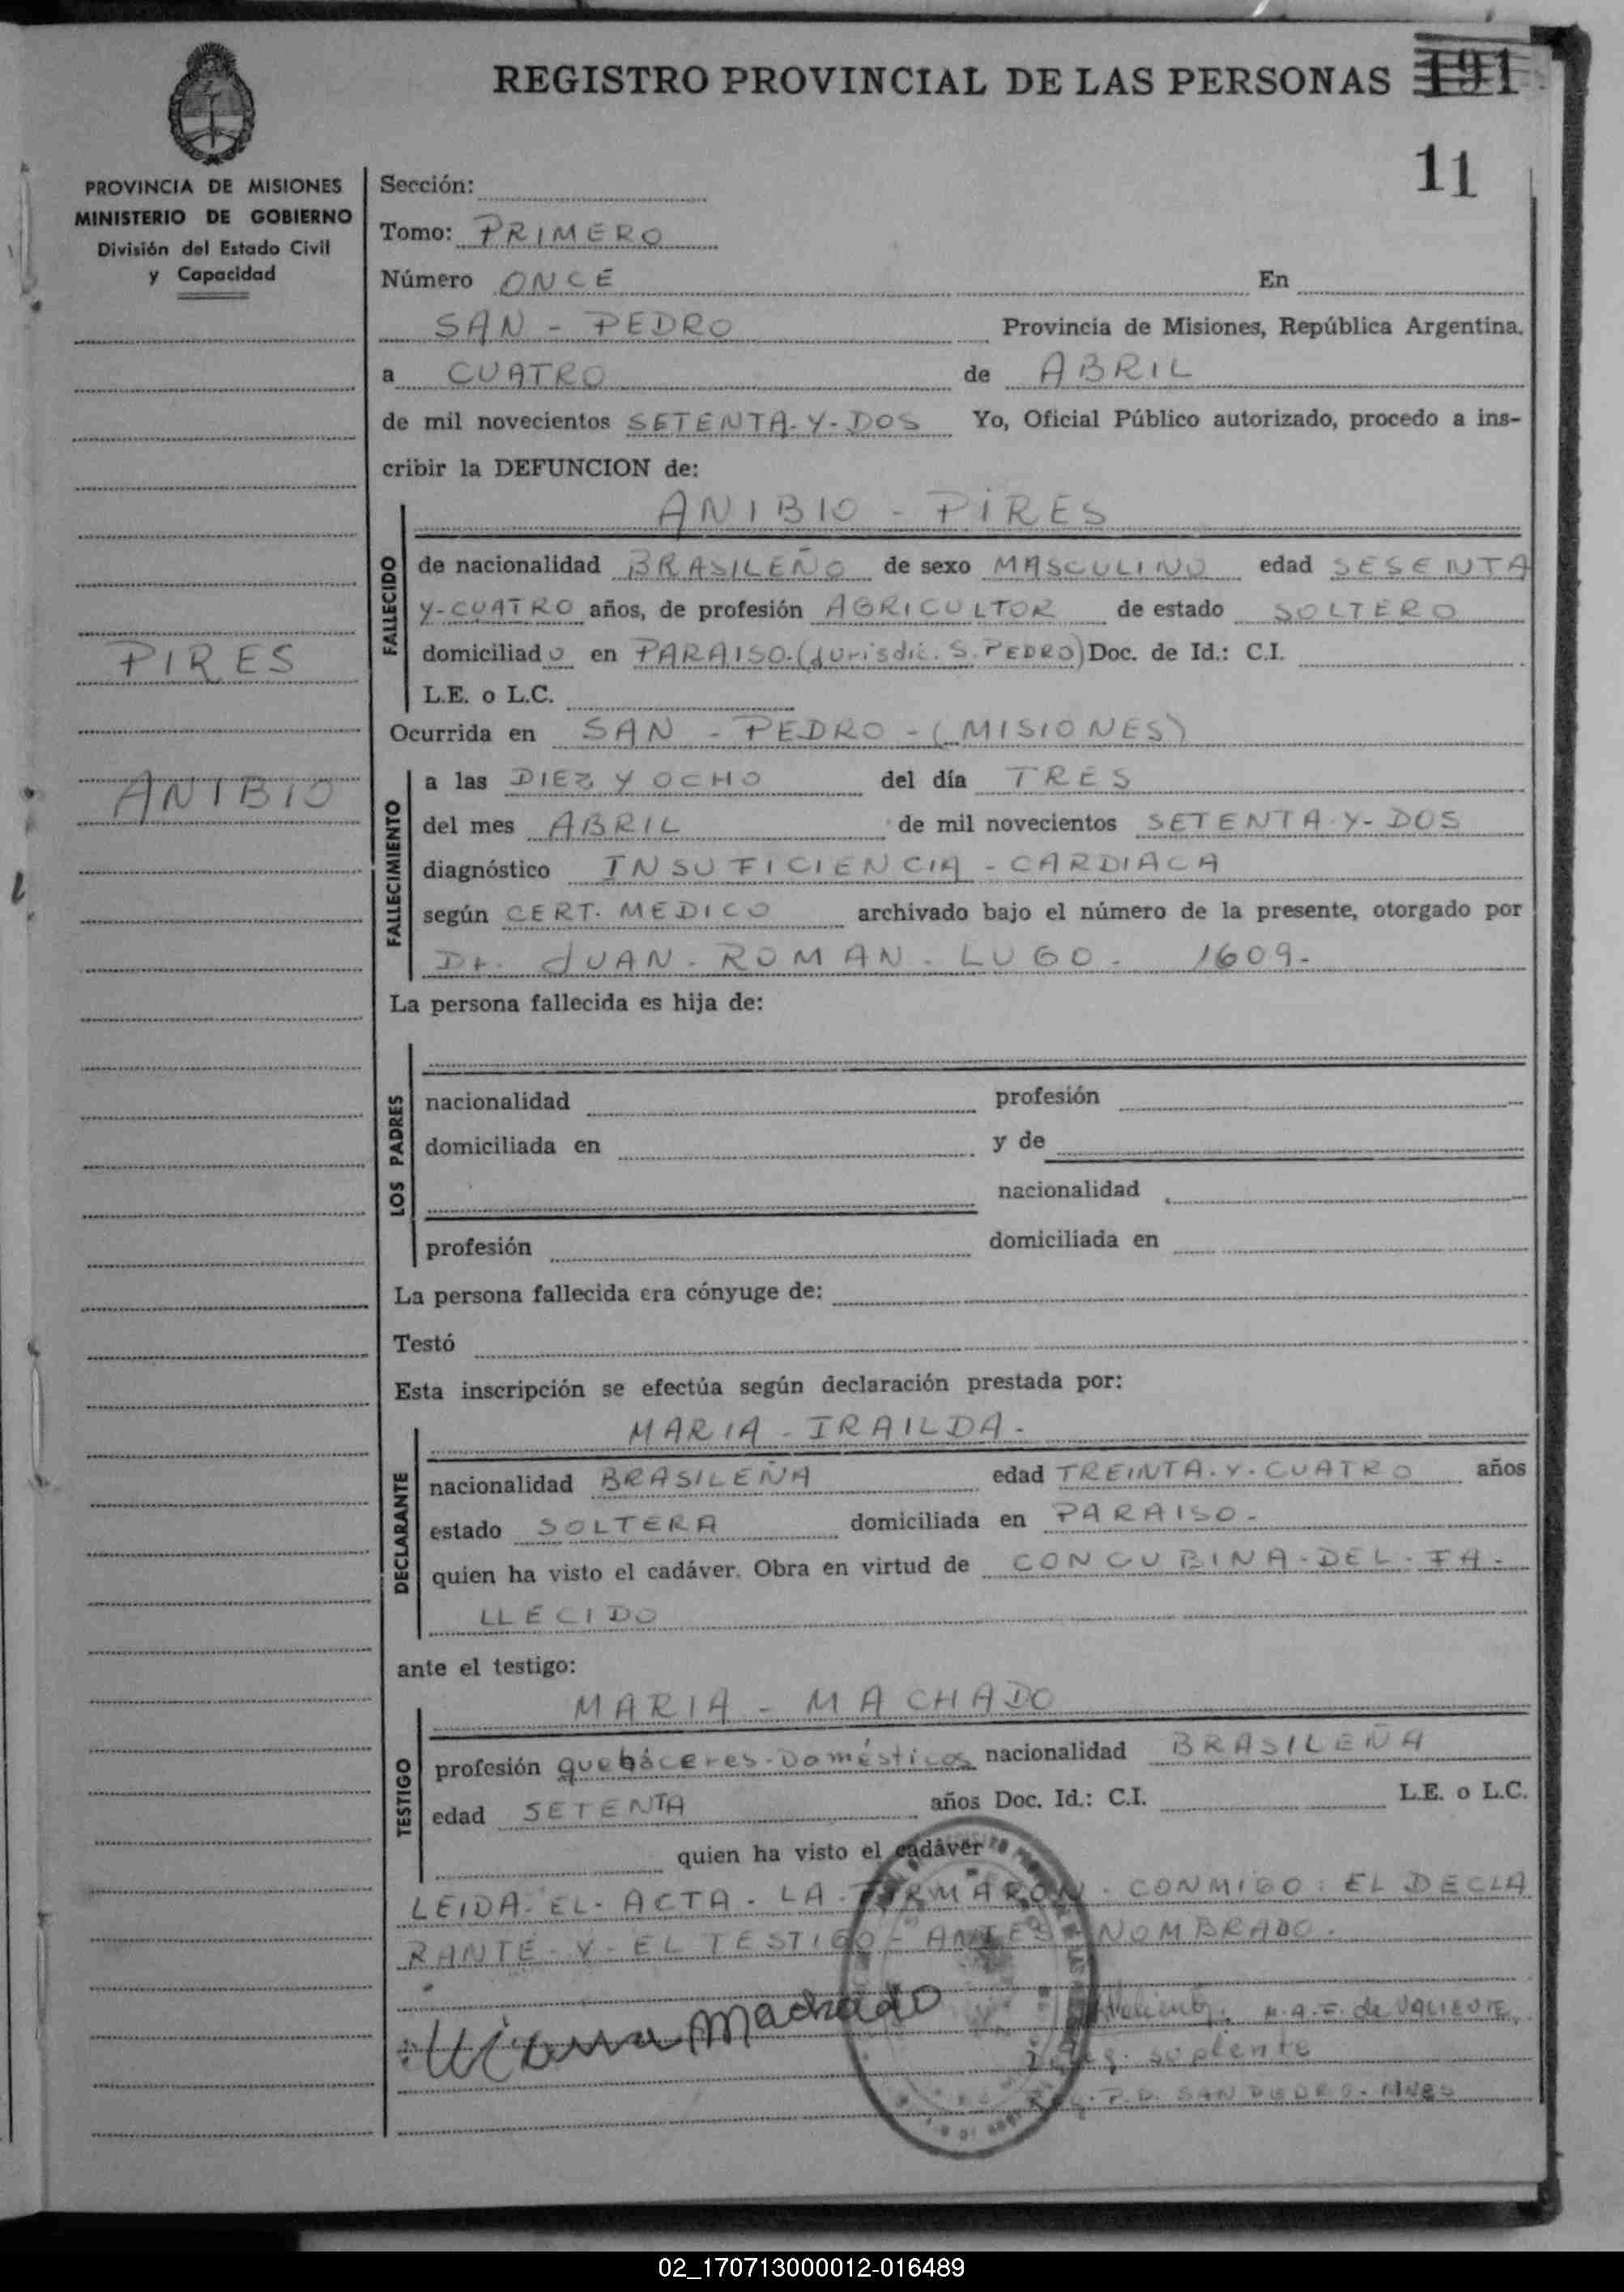 REGISTRO PROVINCIAL DE LAS PERSONAS 191
11
PROVINCIA DE MISIONES
MINISTERIO DE GOBIERNO
División del Estado Civil
y Capacidad
PIRES
ANIBIO
Sección:
Tomo: PRIMERO
Número ONCE En
SAN - PEDRO Provincia de Misiones, República Argentina.
a CUATRO de ABRIL
de mil novecientos SETENTA-Y-DOS Yo, Oficial Público autorizado, procedo a ins-
cribir la DEFUNCION de:
ANIBIO - PIRES
FALLECIDO
de nacionalidad BRASILEÑO de sexo MASCULINO edad SESENTA
Y-CUATRO años, de profesión AGRICULTOR de estado SOLTERO
domiciliado en PARAISO.(Jurisdic. S. PEDRO) Doc. de Id.: C.I.
L.E. o L.C.
Ocurrida en SAN - PEDRO - (MISIONES)
FALLECIMIENTO
a las DIEZ Y OCHO del día TRES
del mes ABRIL de mil novecientos SETENTA-Y-DOS
diagnóstico INSUFICIENCIA - CARDIACA
según CERT. MEDICO archivado bajo el número de la presente, otorgado por
Dr. JUAN - ROMAN - LUGO - 1609-
La persona fallecida es hija de:
LOS PADRES
nacionalidad profesión
domiciliada en y de
nacionalidad
profesión domiciliada en
La persona fallecida era cónyuge de:
Testó
Esta inscripción se efectúa según declaración prestada por:
MARIA - IRAILDA -
DECLARANTE
nacionalidad BRASILEÑA edad TREINTA-Y-CUATRO años
estado SOLTERA domiciliada en PARAISO -
quien ha visto el cadáver. Obra en virtud de CONCUBINA-DEL-FA-
LLECIDO
ante el testigo:
MARIA - MACHADO
TESTIGO
profesión queháceres-Domésticos nacionalidad BRASILEÑA
edad SETENTA años Doc. Id.: C.I. L.E. o L.C.
quien ha visto el cadáver
LEIDA-EL-ACTA-LA-FIRMARON-CONMIGO: EL DECLA
RANTE-Y-EL TESTIGO-ANTES NOMBRADO.
Machado
M.A.F. de VALIENTE
suplente
SAN PEDRO-MNES
02_170713000012-016489